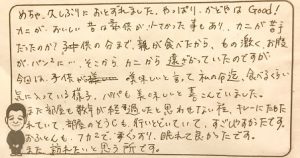 めちゃ、久しぶりにおとずれました。やっぱり、かどやは Good!
カニがおいしい 昔は子供が小さかった事もあり、カニが苦手
だったので? 子供の分まで、親が食べたから、もの凄く、お腹
がパンパンにい、そこから カニから 遠ざかっていたのですが
今回は、子供が 美味しいと言って 私の命迄、食べるくらい
気に入っている様子、パパも 美味しいと 喜こんでいました。
また部屋も数十年が経過したと思わせない程、キレーにたもた
れていて、部屋のそうじも、行いとどいていて、すごしやすかったです。
からくとも、フカフカで、すぐ、ねむり、眠れて 良かったです。
また 訪れたいと思う所です。